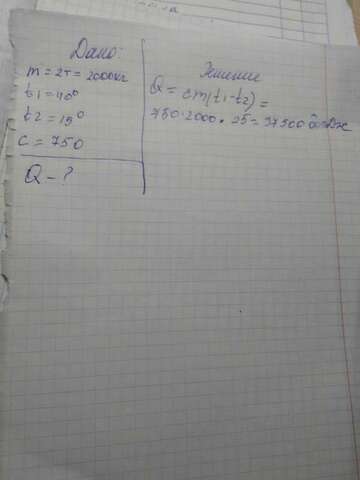 Дано:
m = 2т = 2000кг
t1 = 40°
t2 = 15°
c = 750
Q - ?
Решение
Q = cm(t1-t2) =
750·2000·25 = 37500 Дж